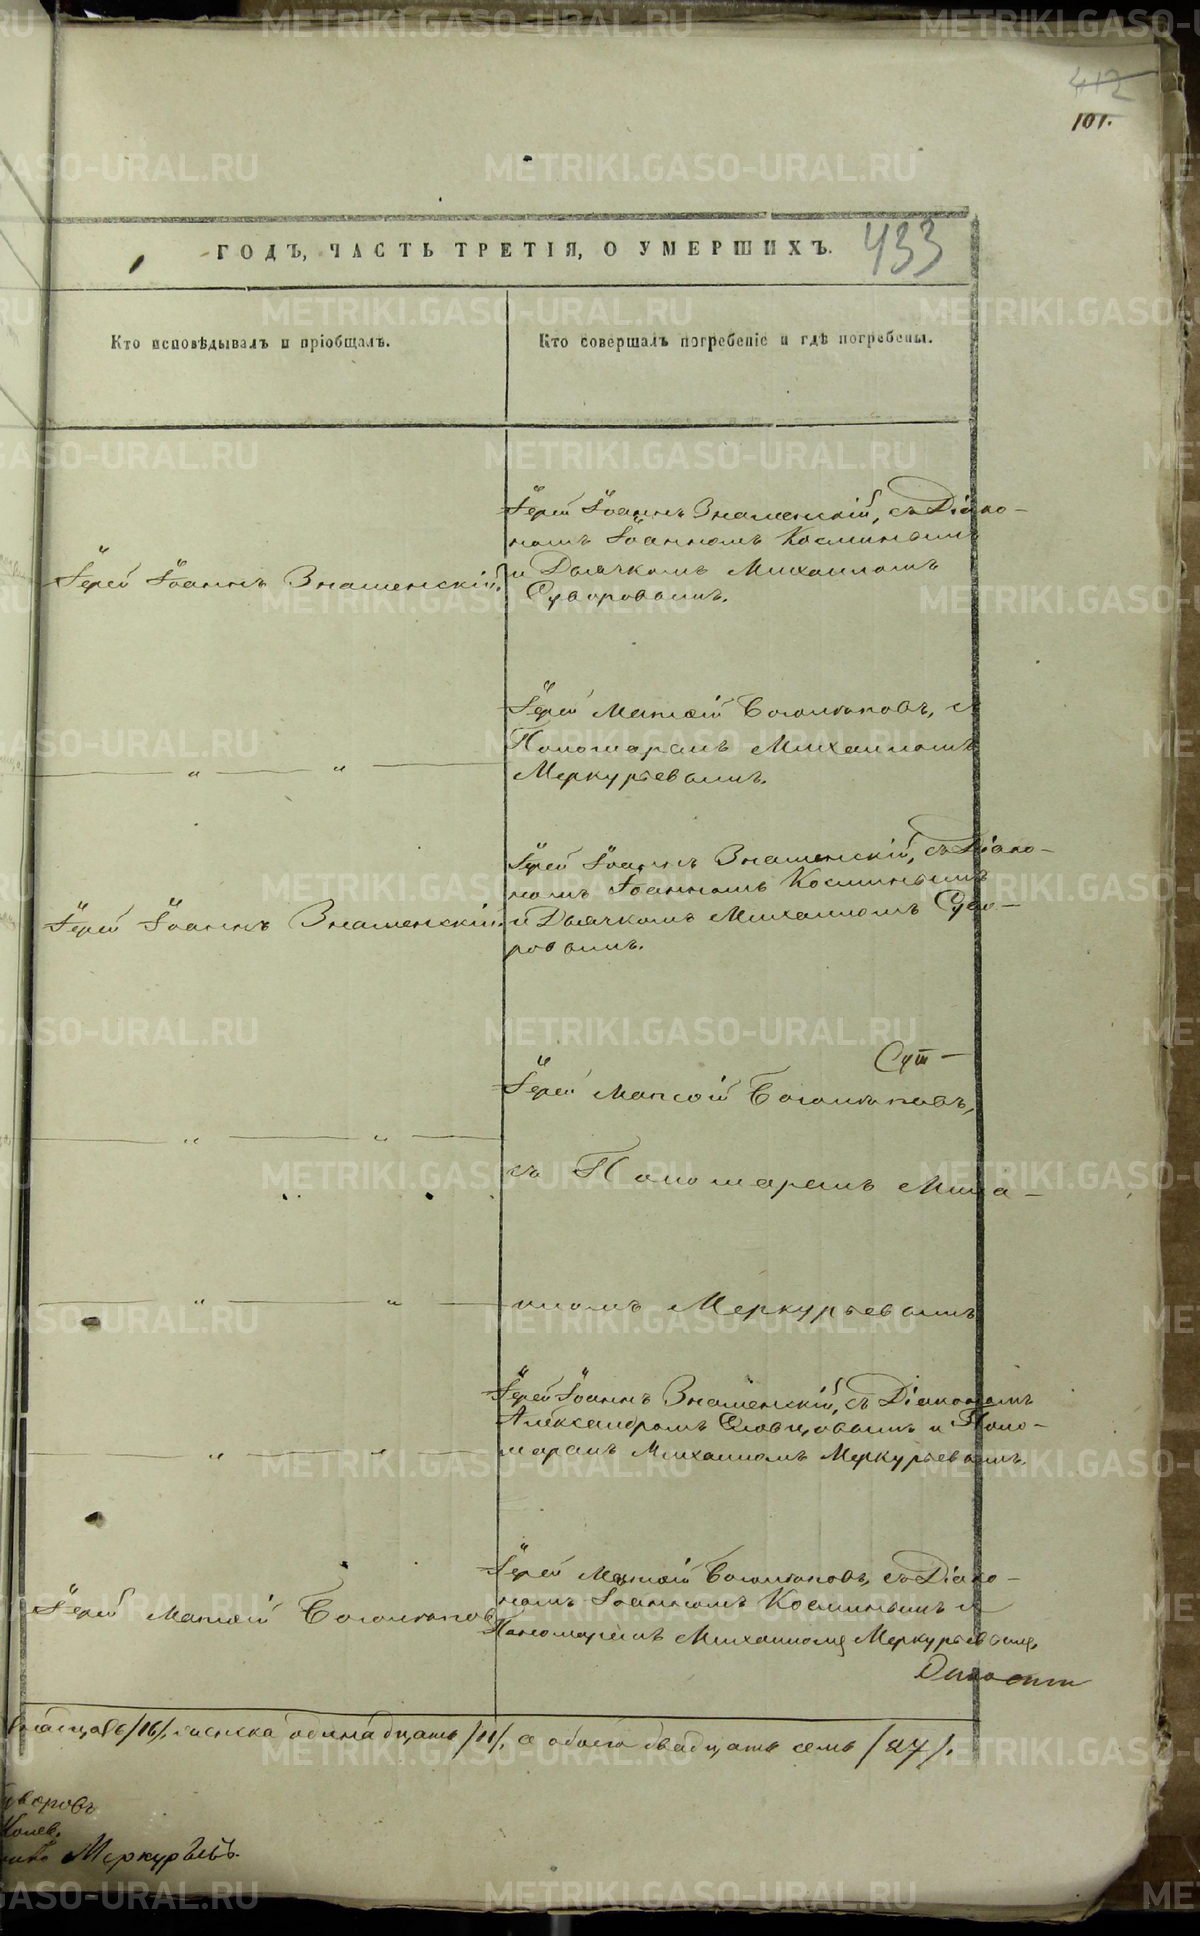 412
101.
ГОДЪ, ЧАСТЬ ТРЕТІЯ, О УМЕРШИХЪ.
433
Кто исповѣдывалъ и пріобщалъ.
Кто совершалъ погребеніе и гдѣ погребены.
Іерей Іоаннъ Знаменскій.
Іерей Іоаннъ Знаменскій, съ Діако-
номъ Іоанномъ Косминымъ
и Дьячкомъ Михаиломъ
Суворовымъ.
— " — " —
Іерей Матѳій Боголюповъ, съ
Пономаремъ Михаиломъ
Меркурьевымъ.
Іерей Іоаннъ Знаменскій.
Іерей Іоаннъ Знаменскій, съ Діако-
номъ Іоанномъ Косминымъ
и Дьячкомъ Михаиломъ Суво-
ровымъ.
— " — " —
Іерей Матѳій Боголюповъ,
съ Пономаремъ Миха-
— " — " —
иломъ Меркурьевымъ
— " — " —
Іерей Іоаннъ Знаменскій, съ Діакономъ
Александромъ Словцовымъ и Поно-
маремъ Михаиломъ Меркурьевымъ.
Іерей Матѳій Боголюповъ
Іерей Матѳій Боголюповъ, съ Діако-
номъ Іоанномъ Косминымъ и
Пономаремъ Михаиломъ Меркурьевымъ.
/16/, женска одинадцать /11/, а обоего двадцать семь /27/.
уворовъ
Меркурьевъ
METRIKI.GASO-URAL.RU